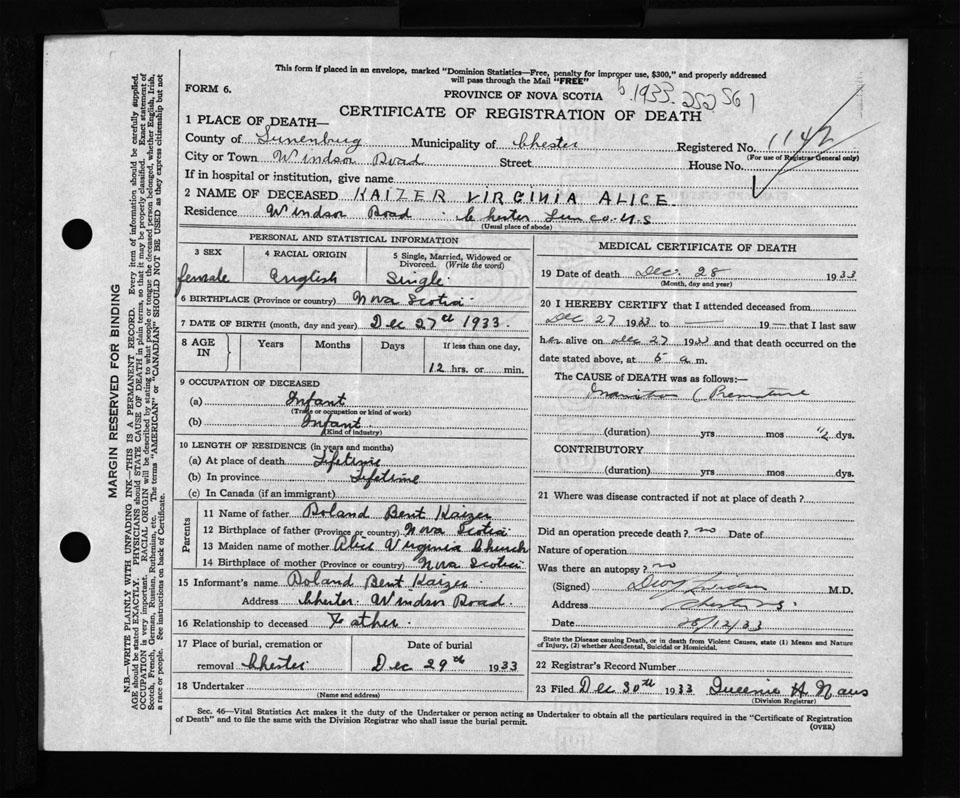 This form if placed in an envelope, marked "Dominion Statistics—Free, penalty for improper use, $300," and properly addressed
will pass through the Mail "FREE"
FORM 6.
PROVINCE OF NOVA SCOTIA b. 1933. 252 561
CERTIFICATE OF REGISTRATION OF DEATH
1 PLACE OF DEATH—
County of Lunenburg Municipality of Chester Registered No. 1142
(For use of Registrar General only)
City or Town Windsor Road Street House No.
If in hospital or institution, give name
2 NAME OF DECEASED KAIZER VIRGINIA ALICE.
Residence Windsor Road Chester Lun co. N.S
(Usual place of abode)
PERSONAL AND STATISTICAL INFORMATION
3 SEX female
4 RACIAL ORIGIN English
5 Single, Married, Widowed or Divorced. (Write the word) Single
6 BIRTHPLACE (Province or country) Nova Scotia
7 DATE OF BIRTH (month, day and year) Dec 27th 1933.
8 AGE IN Years Months Days If less than one day, 12 hrs. or min.
9 OCCUPATION OF DECEASED
(a) Infant
(Trade or occupation or kind of work)
(b) Infant
(Kind of industry)
10 LENGTH OF RESIDENCE (in years and months)
(a) At place of death Lifetime
(b) In province Lifetime
(c) In Canada (if an immigrant)
Parents
11 Name of father Roland Bent Kaizer
12 Birthplace of father (Province or country) Nova Scotia
13 Maiden name of mother Alice Virginia Church
14 Birthplace of mother (Province or country) Nova Scotia
15 Informant's name Roland Bent Kaizer
Address Chester Windsor Road.
16 Relationship to deceased Father.
17 Place of burial, cremation or removal Chester
Date of burial Dec 29th 1933
18 Undertaker
(Name and address)
MEDICAL CERTIFICATE OF DEATH
19 Date of death Dec. 28 1933
(Month, day and year)
20 I HEREBY CERTIFY that I attended deceased from
Dec 27 1933 to — 19 — that I last saw
her alive on Dec 27 and that death occurred on the
date stated above, at 5 a m.
The CAUSE OF DEATH was as follows:—
Premature
(duration) yrs mos ½ dys.
CONTRIBUTORY
(duration) yrs mos dys.
21 Where was disease contracted if not at place of death?
Did an operation precede death? no Date of
Nature of operation
Was there an autopsy? no
(Signed) M.D.
Address Chester N.S.
Date /12/33
State the Disease causing Death, or in death from Violent Causes, state (1) Means and Nature
of Injury, (2) whether Accidental, Suicidal or Homicidal.
22 Registrar's Record Number
23 Filed Dec 30th 1933 H Naus
(Division Registrar)
Sec. 46—Vital Statistics Act makes it the duty of the Undertaker or person acting as Undertaker to obtain all the particulars required in the "Certificate of Registration
of Death" and to file the same with the Division Registrar who shall issue the burial permit.
(OVER)
MARGIN RESERVED FOR BINDING
N.B.—WRITE PLAINLY WITH UNFADING INK—THIS IS A PERMANENT RECORD. Every item of information should be carefully supplied.
AGE should be stated EXACTLY. PHYSICIANS should STATE CAUSE OF DEATH in plain terms, so that it may be properly classified. Exact statement of
OCCUPATION is very important. RACIAL ORIGIN will be described by stating to what people or tongue the deceased person belonged, whether English, Irish,
Scotch, French, German, Russian, Ruthenian, etc. The terms "AMERICAN" or "CANADIAN" SHOULD NOT BE USED as they express citizenship but not
a race or people. See instructions on back of Certificate.